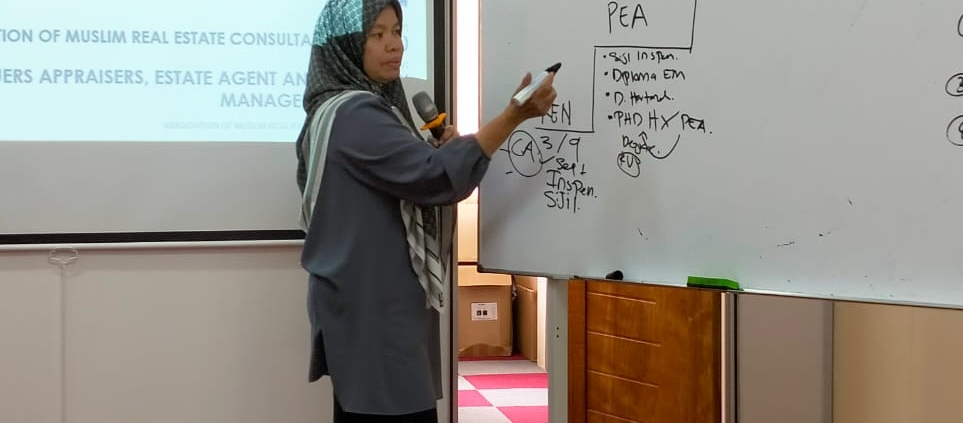 TION OF MUSLIM REAL ESTATE CONSULTA
UERS APPRAISERS, ESTATE AGENT AN
MANAGE
ASSOCIATION OF MUSLIM REAL
PEA
• Sijil Inspen.
• Diploma EM
• D. Hartanah.
• PHD HX PEA.
Degree.
REN
CA 3/9
Sej 1
Inspen.
Sijil.